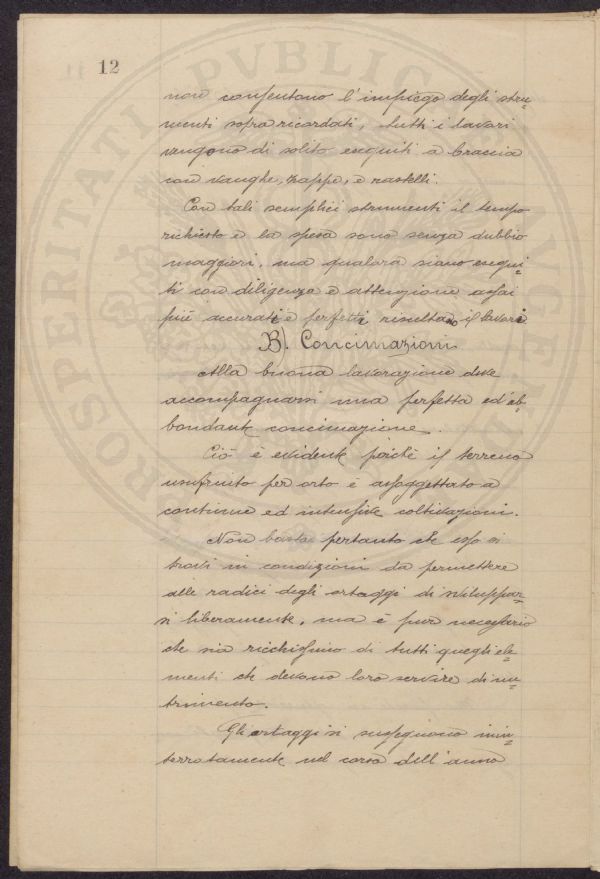 12
non consentono l'impiego degli stru-
menti sopra ricordati, tutti i lavori
vengono di solito eseguiti a braccia
con vanghe, zappe, e rastelli.
Con tali semplici strumenti il tempo
richiesto e la spesa sono senza dubbio
maggiori, ma qualora siano esegui-
ti con diligenza e attenzione assai
più accurati e perfetti risultano i lavori
B). Concimazioni
Alla buona lavorazione deve
accompagnarsi una perfetta ed ab-
bondante concimazione.
Ciò è evidente poiché il terreno
usufruito per orto è assoggettato a
continue ed intensive coltivazioni.
Non basta pertanto che esso si
trovi in condizioni da permettere
alle radici degli ortaggi di sviluppar-
si liberamente, ma è pur necessario
che sia ricchissimo di tutti quegli ele-
menti che devono loro servire di nu-
trimento.
Gli ortaggi si susseguono inin-
terrotamente nel corso dell'anno
PROSPERITATI PVBLICAE